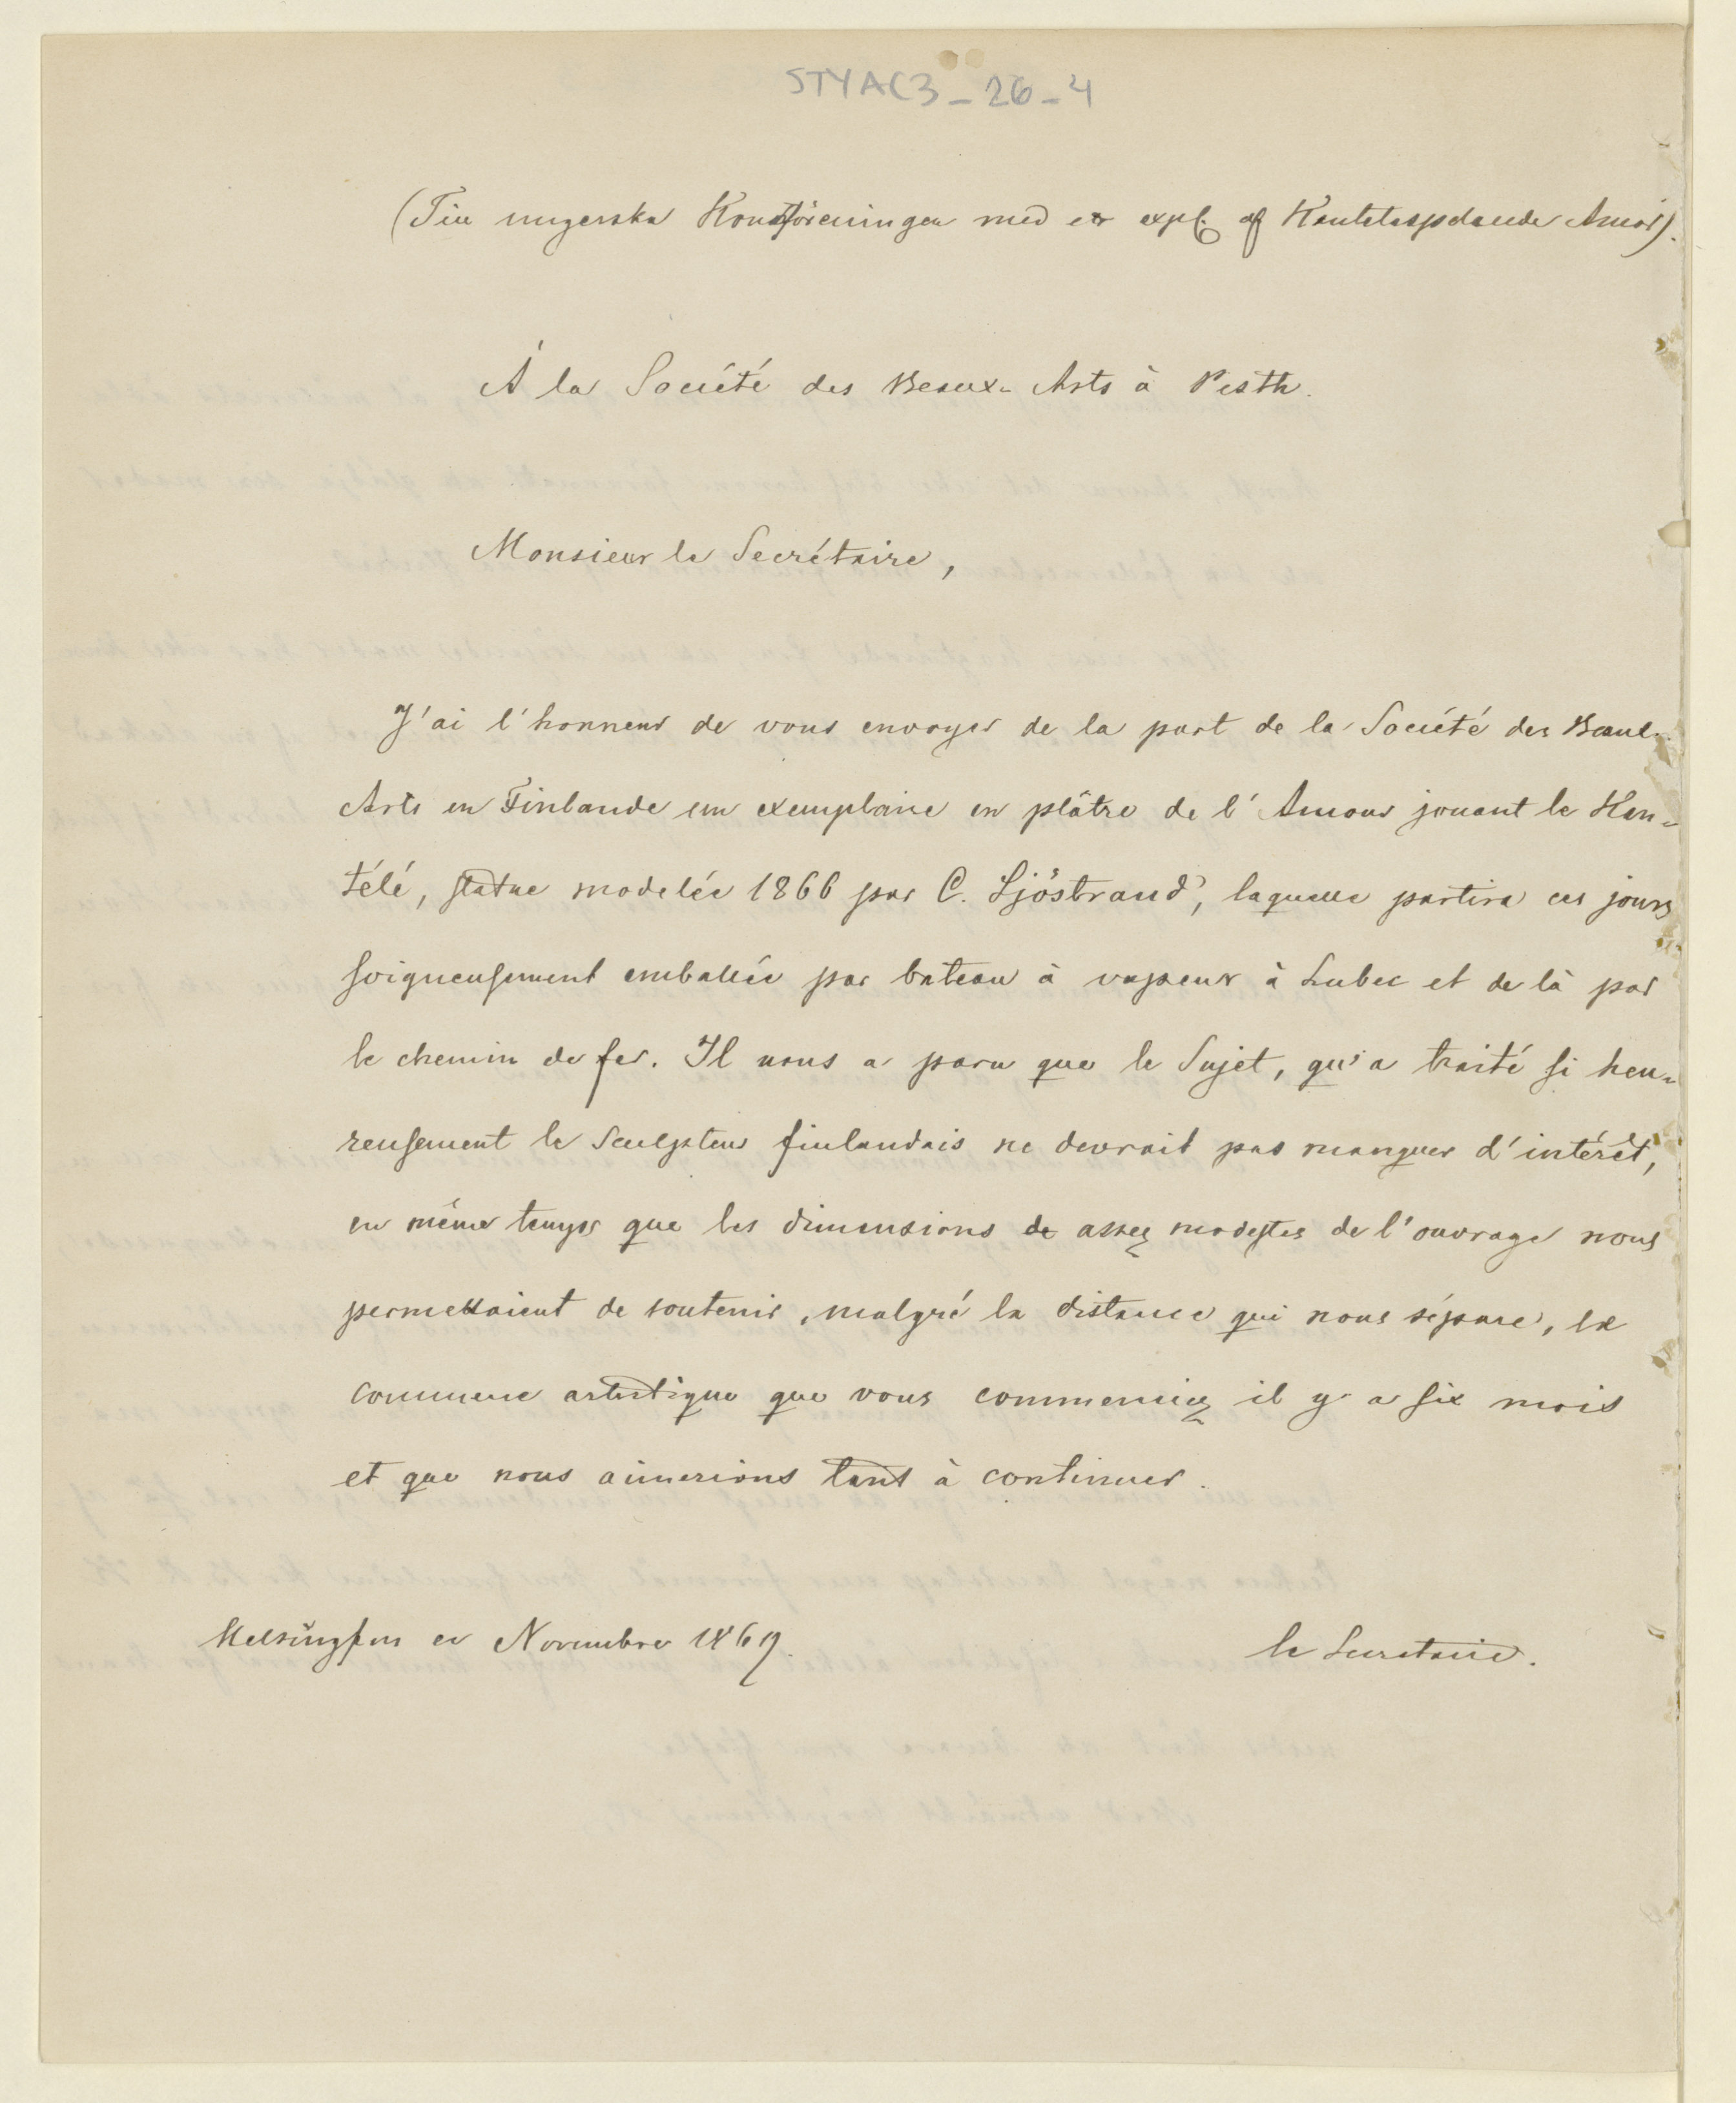 STYAC3_26_4
(Till ungerska Konstföreningen med ex expl. af Kantelespelande Amor).
À la Société des Beaux-Arts à Pesth.
Monsieur le Secrétaire,
J'ai l'honneur de vous envoyer de la part de la Société des Beaux-
Arts en Finlande un exemplaire en plâtre de l'Amour jouant le Kan-
télé, statue modelée 1866 par C. Sjöstrand, laquelle partira ces jours
soigneusement emballée par bateau à vapeur à Lubec et de là par
le chemin de fer. Il nous a paru que le Sujet, qu'a traité si heu-
reusement le Sculpteur finlandais ne devrait pas manquer d'intérêt,
en même temps que les dimensions de assez modestes de l'ouvrage nous
permettaient de soutenir, malgré la distance qui nous sépare, le
commerce artistique que vous commenciez il y a six mois
et que nous aimerions tant à continuer.
Helsingfors en Novembre 1869.
le Secretaire.